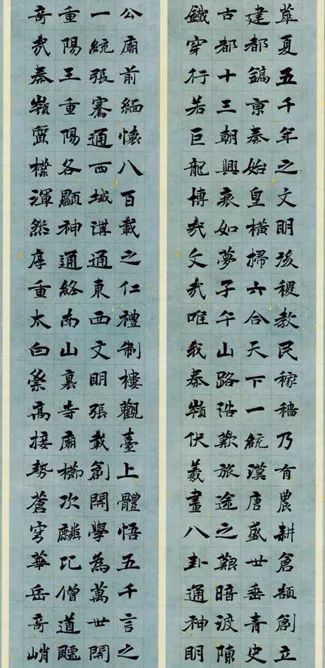 華夏五千年之文明後稷教民稼穡乃有農耕倉頡創立
建都鎬京秦始皇橫掃六合天下一統漢唐盛世垂青史
古都十三朝興衰如夢子午山路浩歎旅途之艱暗渡陳
鐵穿行若巨龍博哉文哉唯我秦嶺伏羲畫八卦通神明
公廟前緬懷八百載之仁禮制樓觀臺上體悟五千言之
一統張騫通西域溝通東西文明張載創關學為萬世開
重陽王重陽各顯神通終南山裏寺廟櫛次麟比僧道
奇哉秦嶺樸渾然厚重太白崇高接勢蒼穹華岳奇峭